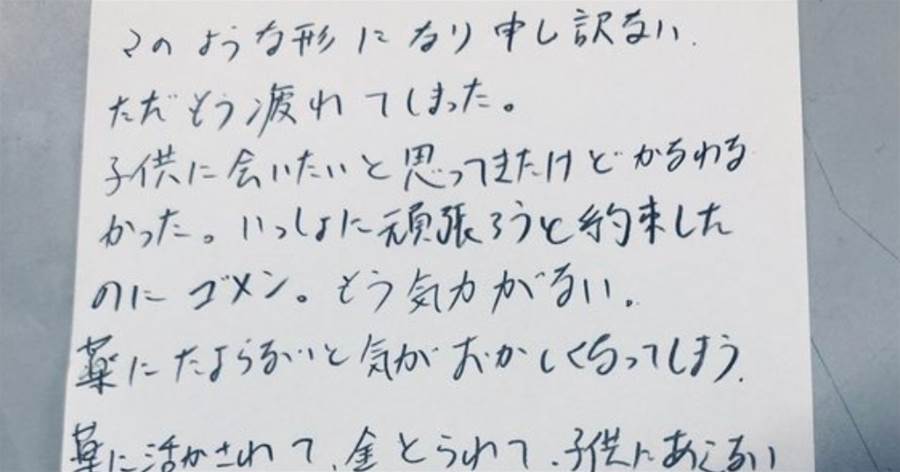 このような形になり申し訳ない.
ただもう疲れてしまった。
子供に会いたいと思ってきたけどかなわな
かった。いっしょに頑張ろうと約束した
のにゴメン。もう気力がない.
薬にたよらないと気がおかしくなってしまう.
薬に活かされて、金とられて、子供にあえない